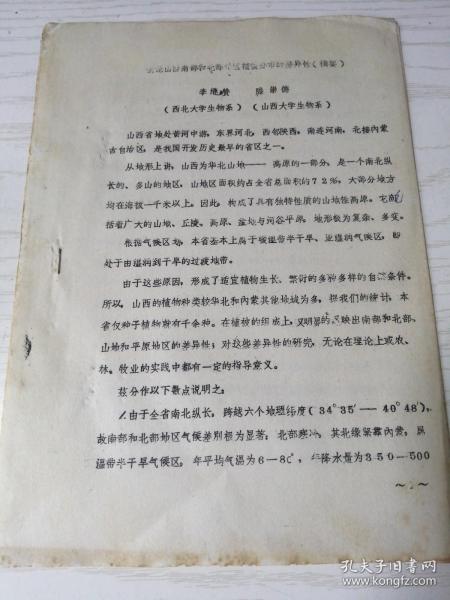 山西南部和北部地区植被分布的差异性(摘要)
李继瓒
(西北大学生物系) (山西大学生物系)
山西省地处黄河中游,东界河北,西邻陕西,南连河南,北接內蒙
古自治区,是我国开发历史最早的省区之一。
从地形上讲,山西为华北山地——高原的一部分,是一个南北纵
长的、多山的地区,山地区面积约占全省总面积的72%,大部分地方
均在海拔一千米以上。因此,构成了具有独特性质的山地性高原。它包
括着广大的山地、丘陵、高原、盆地与河谷平原,地形极为复杂、多变。
根据气候区划,本省基本上属于暖温带半干旱、亚湿润气候区,即
处于由湿润到干旱的过渡地带。
由于这些原因,形成了适宜植物生长、繁衍的多种多样的自然条件。
所以,山西的植物种类较华北和內蒙其他地域为多,据我们的统计,本
省仅种子植物就有千余种。在植被的组成上,又明显的反映出南部和北部、
山地和平原地区的差异性;对这些差异性的研究,无论在理论上或农、
林、牧业的实践中都有一定的指导意义。
兹分作以下数点说明之:
1.由于全省南北纵长,跨越六个地理纬度(34°35′—40°48′),
故南部和北部地区气候差别极为显著,北部寒冷,其北缘紧靠內蒙,属
温带半干旱气候区,年平均气温为6—8C°,年降水量为350—500
~1~
孔夫子旧书网
www.kongfz.com